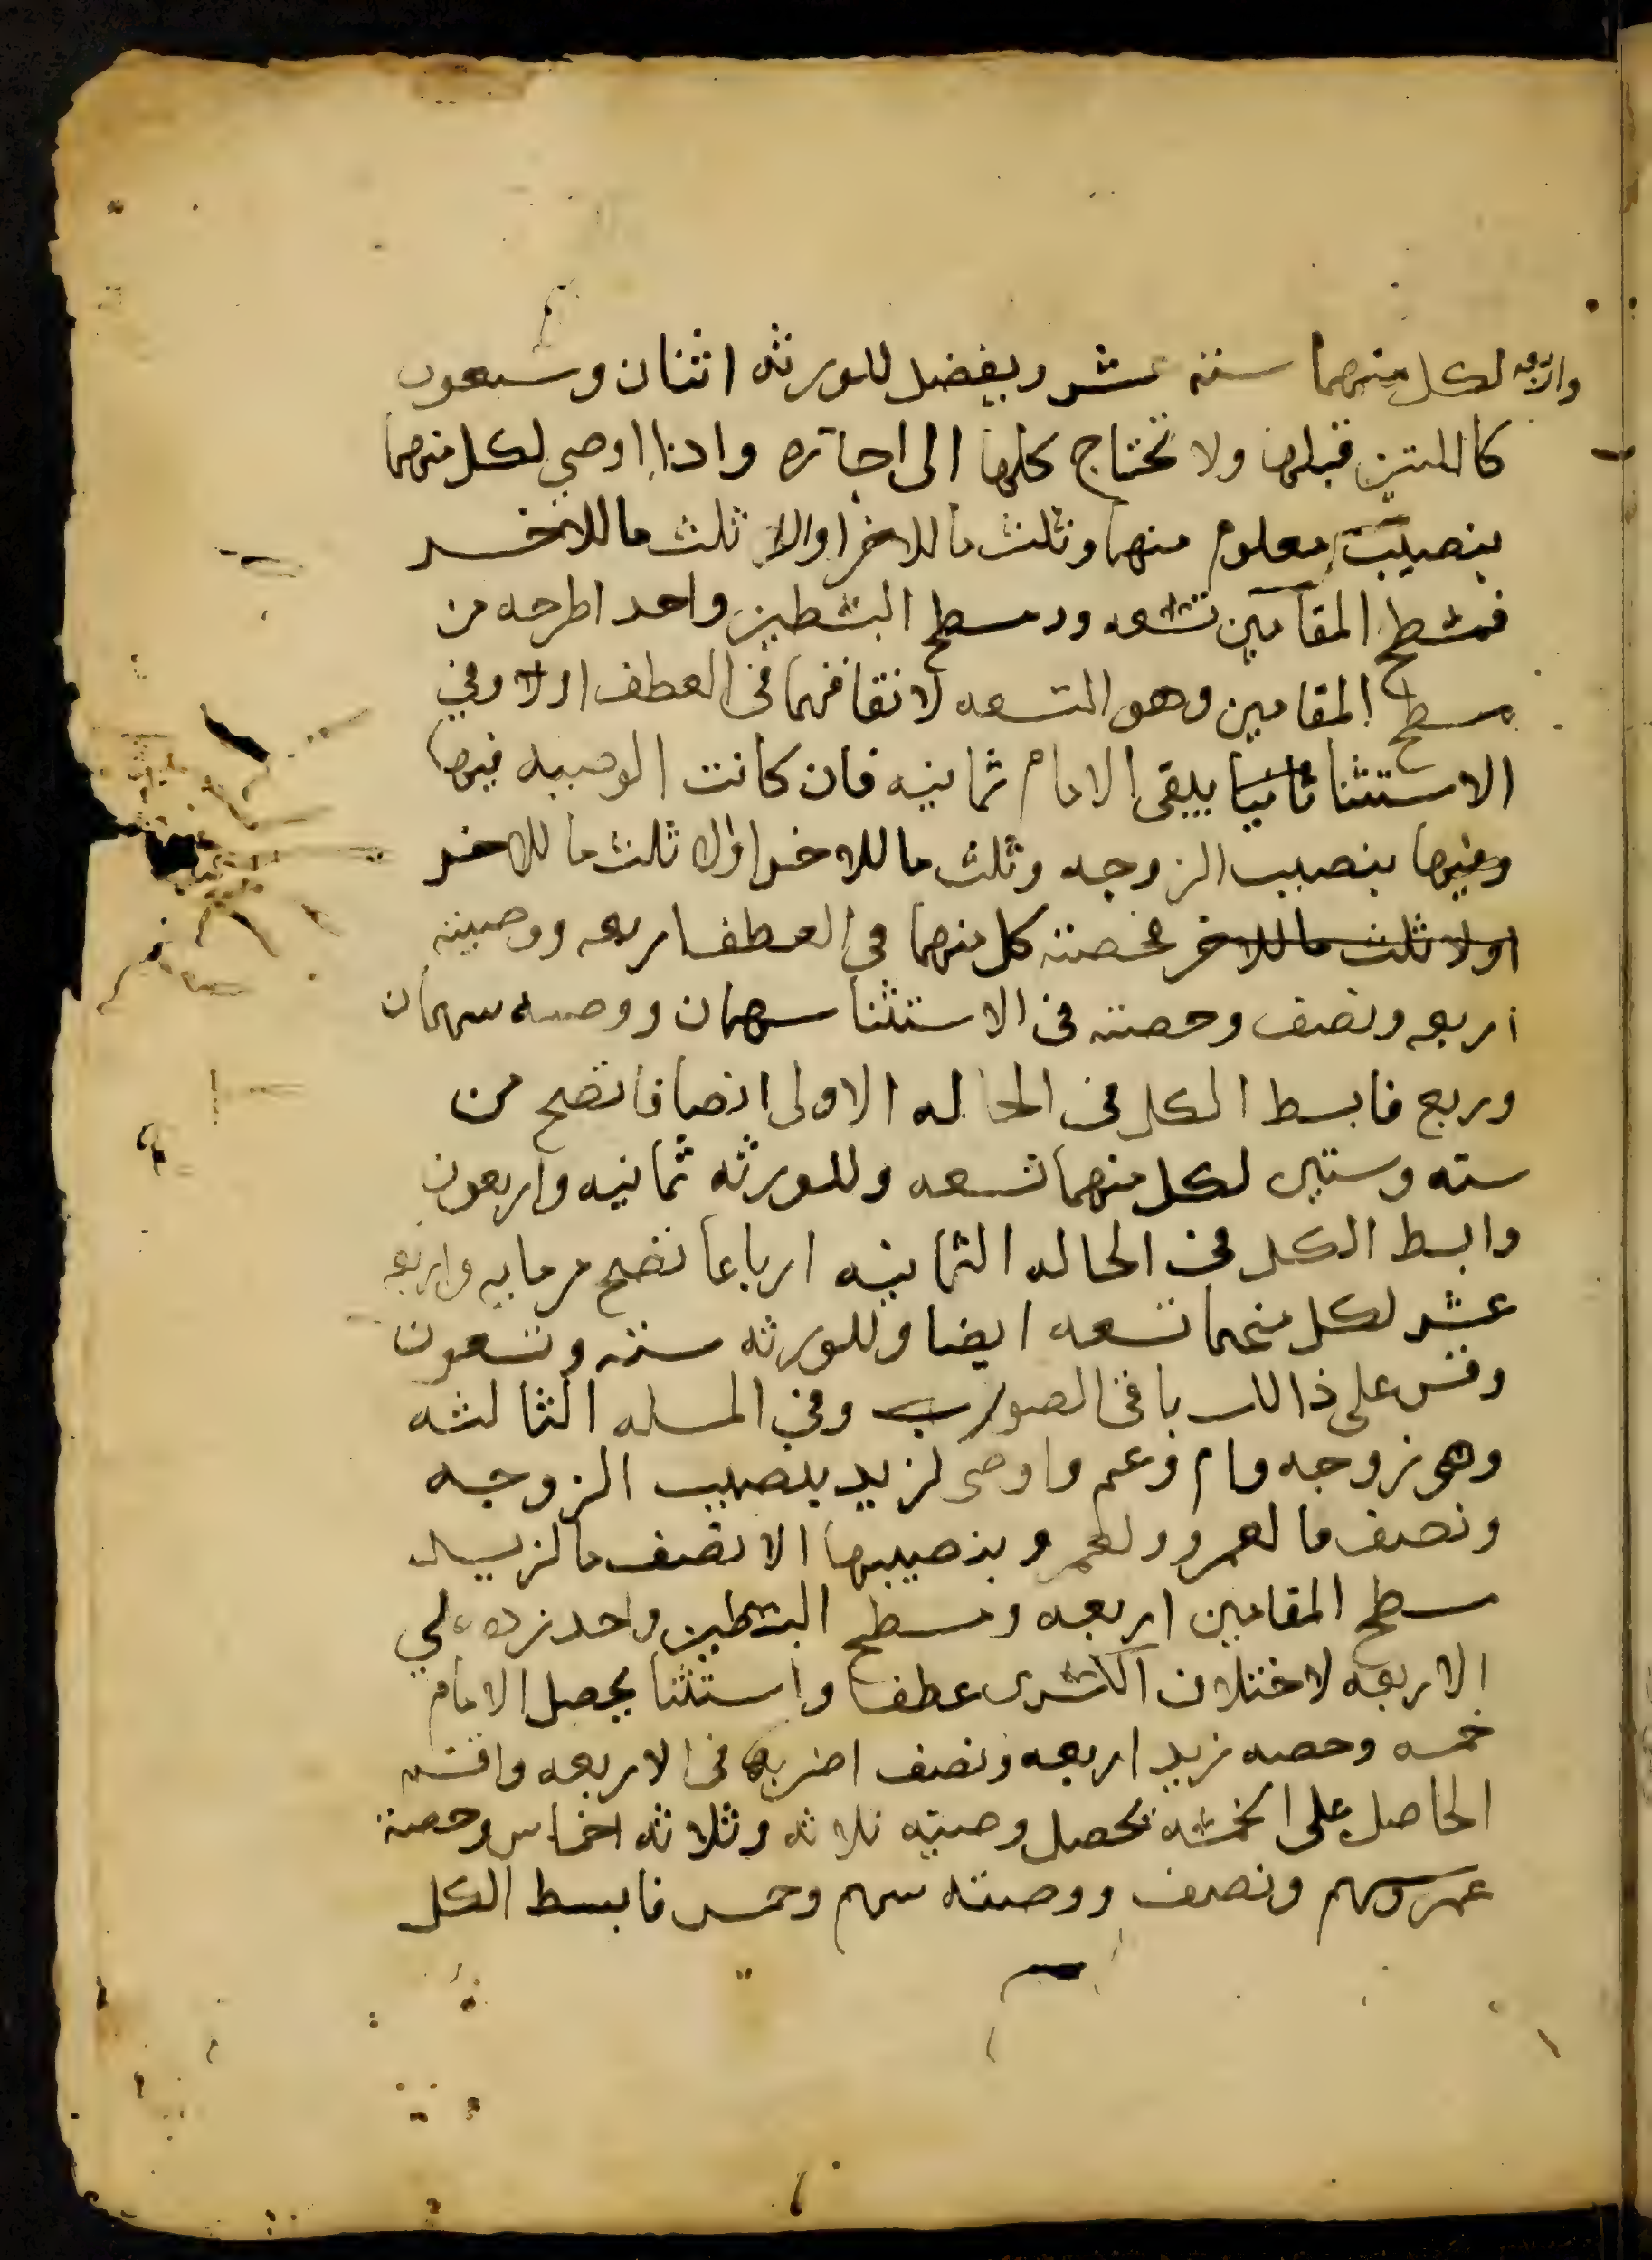 واربعه لكل منهما ستة عشر ويفضل للورثه اثنان وسبعون
كاللتين قبلها ولا تحتاج كلها الى اجازه واذا اوصى لكل منهما
بنصيب معلوم منهما وثلث ما للاخر او الا ثلث ما للاخر
فمسطح المقامين تسعه ومسطح البسطين واحد اطرحه من
مسطح المقامين وهو التسعه لاتفاقهما في العطف اولا وفي
الاستثنا ثانيا يبقى الامام ثمانيه فان كانت الوصيه فيها
وفيها بنصيب الزوجه وثلث ما للاخر او الا ثلث ما للاخر
اولا ثلث ما للاخر فحصته كل منهما في العطف اربعه ووصيته
اربعه ونصف وحصته في الاستثنا سهمان ووصيته سهمان
وربع فابسط الكل في الحاله الاولى انصافا تصح من
سته وستين لكل منهما تسعه وللورثه ثمانيه واربعون
وابسط الكل في الحاله الثانيه ارباعا تصح من مايه واربعه
عشر لكل منهما تسعه ايضا وللورثه سته وتسعون
وقس على ذالك باقي الصور وفي المسله الثالثه
وهي زوجه وام وعم واوصى لزيد بنصيب الزوجه
ونصف ما لعمرو ولعمرو بنصيبها الا نصف ما لزيد
سطح المقامين اربعه ومسطح البسطين واحد زده على
الاربعه لاختلاف الكسرين عطفا واستثنا يحصل الامام
خمسه وحصه زيد اربعه ونصف اضربها في الاربعه واقسم
الحاصل على الخمسه تحصل وصيته ثلاثه وثلاثه اخماس وحصة
عمرو سهم ونصف ووصيته سهم وخمس فابسط الكل